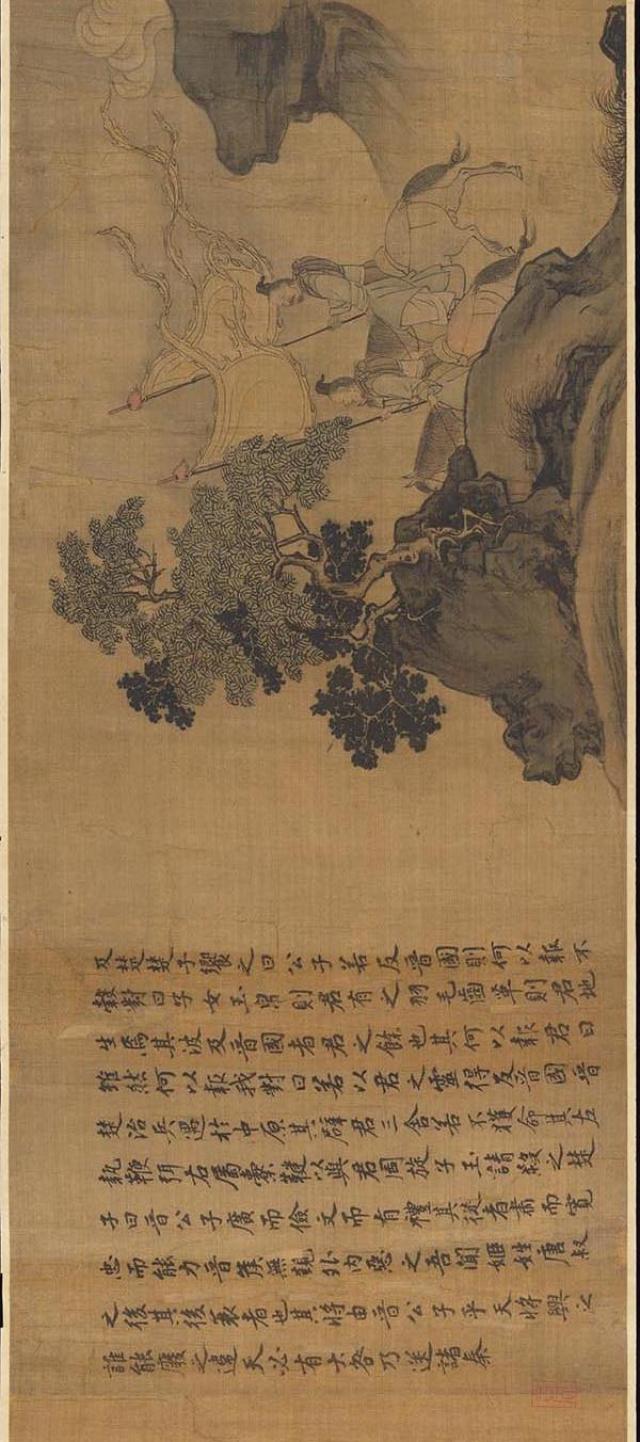 及楚楚子饗之曰公子若反晉國則何以報不
穀對曰子女玉帛則君有之羽毛齒革則君地
生焉其波及晉國者君之餘也其何以報君曰
雖然何以報我對曰若以君之靈得反晉國晉
楚治兵遇於中原其辟君三舍若不獲命其左
執鞭弭右屬櫜鞬以與君周旋子玉請殺之楚
子曰晉公子廣而儉文而有禮其從者肅而寬
忠而能力晉侯無親外內惡之吾聞姬姓唐叔
之後其後衰者也其將由晉公子乎天將興之
誰能廢之違天必有大咎乃送諸秦